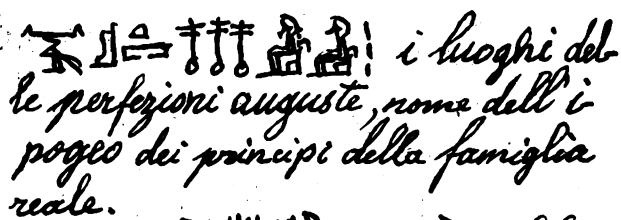 i luoghi del-
le perfezioni auguste, nome dell'i-
pogeo dei principi della famiglia
reale.